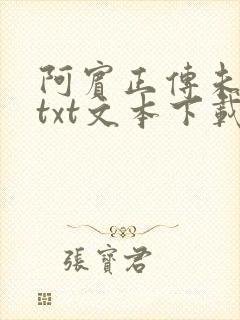 阿賓正傳未
txt文本下載
張寶君